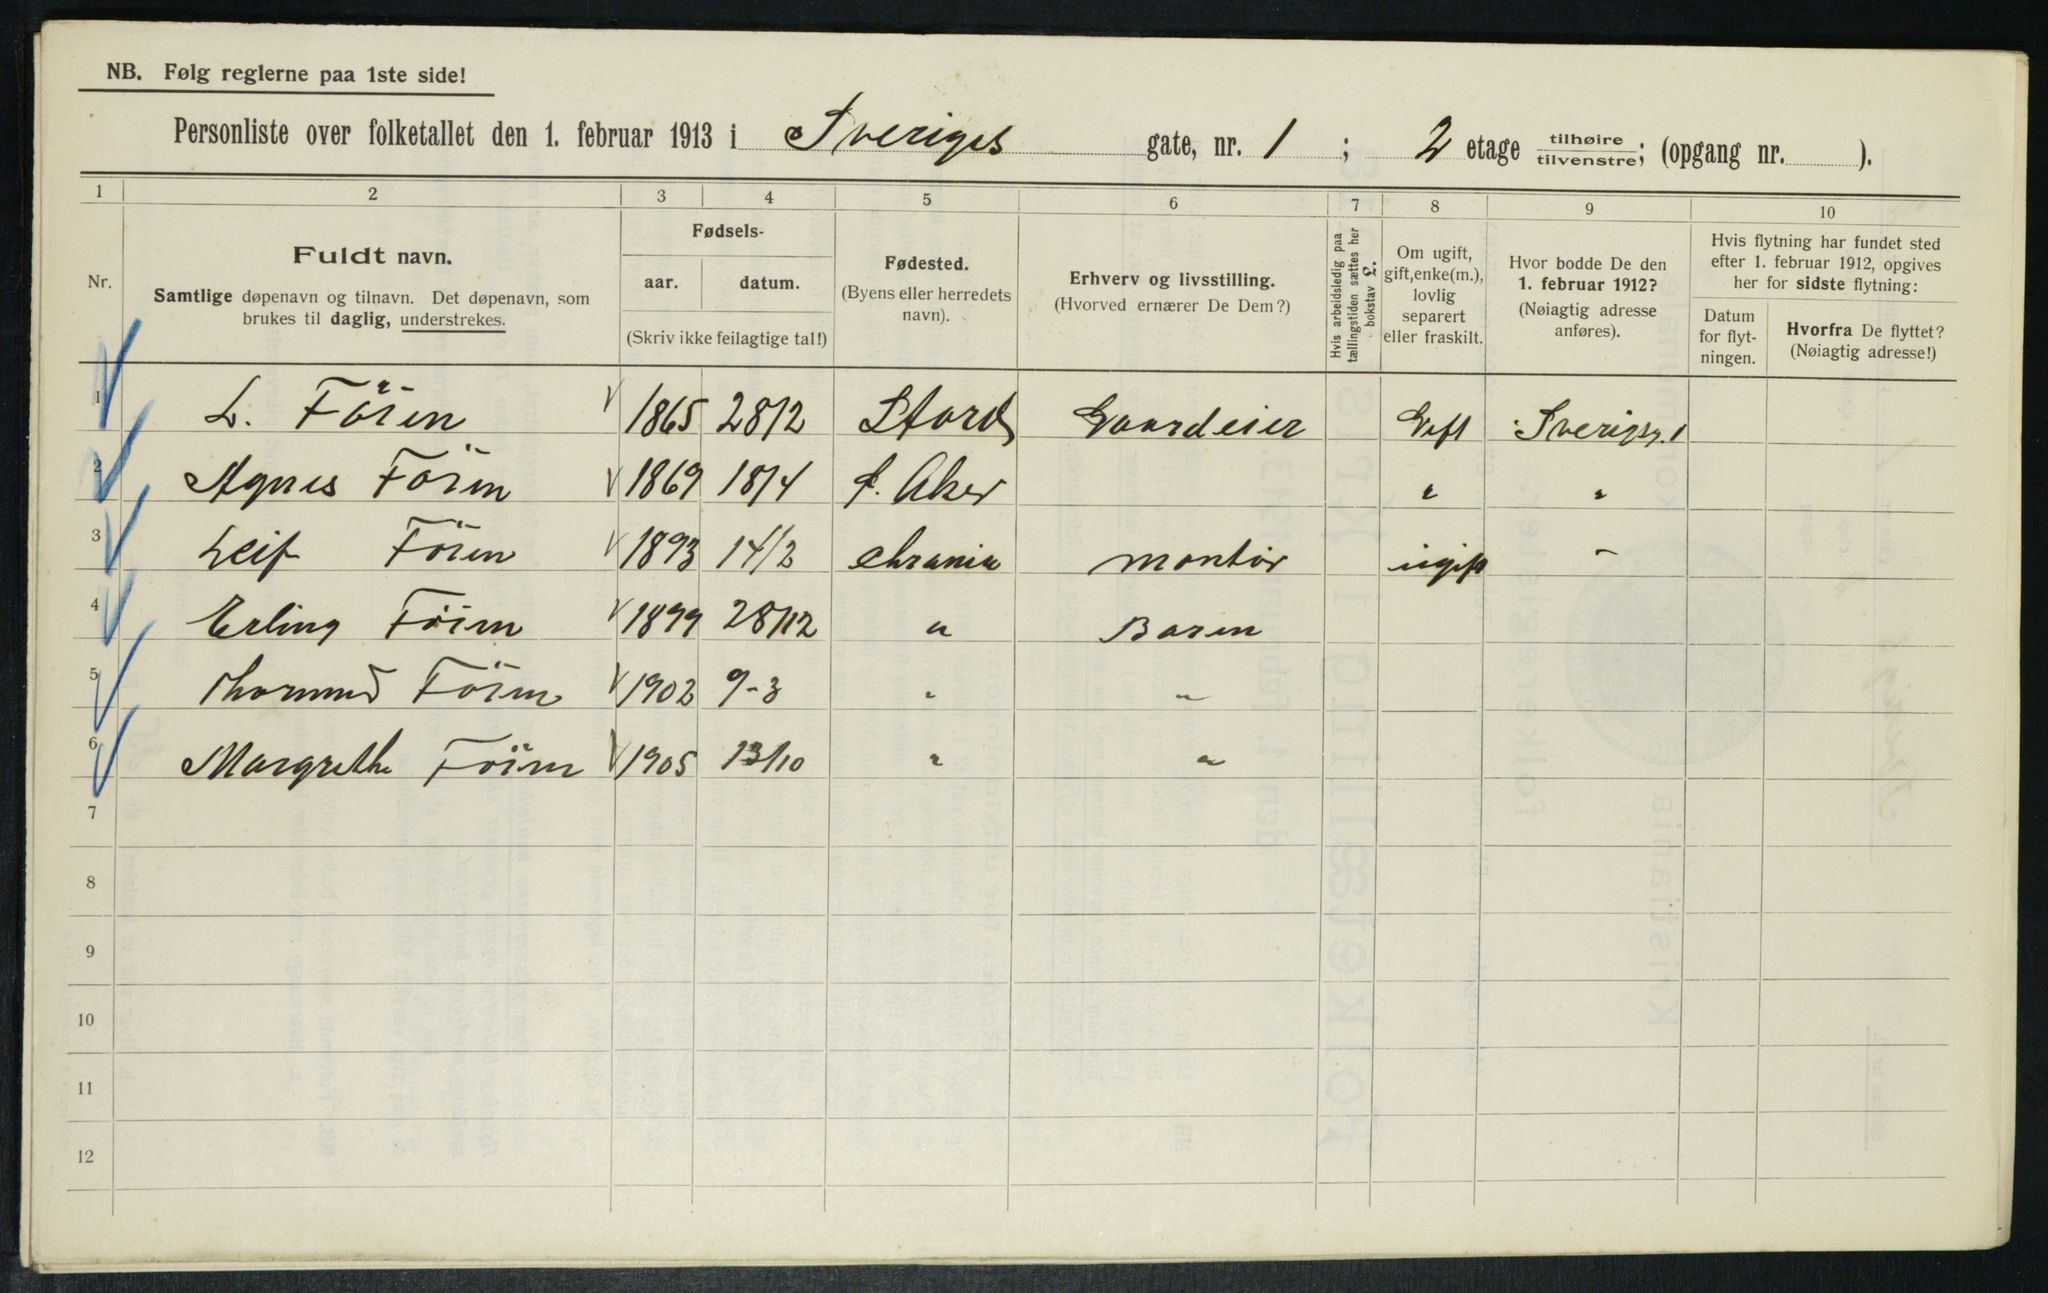 NB. Følg reglerne paa 1ste side!
Personliste over folketallet den 1. februar 1913 i Sveriges gate, nr. 1 ; 2 etage tilhøire/tilvenstre; (opgang nr. ).
1 2 3 4 5 6 7 8 9 10
Nr.
Fuldt navn.
Samtlige døpenavn og tilnavn. Det døpenavn, som
brukes til daglig, understrekes.
Fødsels-
aar. datum.
(Skriv ikke feilagtige tal!)
Fødested.
(Byens eller herredets
navn).
Erhverv og livsstilling.
(Hvorved ernærer De Dem?)
Hvis arbeidsledig paa
tællingstiden sættes her
bokstav £.
Om ugift,
gift, enke(m.),
lovlig
separert
eller fraskilt.
Hvor bodde De den
1. februar 1912?
(Nøiagtig adresse
anføres).
Hvis flytning har fundet sted
efter 1. februar 1912, opgives
her for sidste flytning:
Datum
for flyt-
ningen.
Hvorfra De flyttet?
(Nøiagtig adresse!)
1 L. Föien 1865 28/2 Stord Gaardeier Gift Sverigsg. 1
2 Agnes Föien 1869 18/4 Aker " "
3 Leif Föien 1893 14/2 Chrania montør ugift "
4 Erling Föien 1899 28/12 " Baren
5 Thormod Föien 1902 9-3 " "
6 Margrethe Föien 1905 13/10 " "
7
8
9
10
11
12